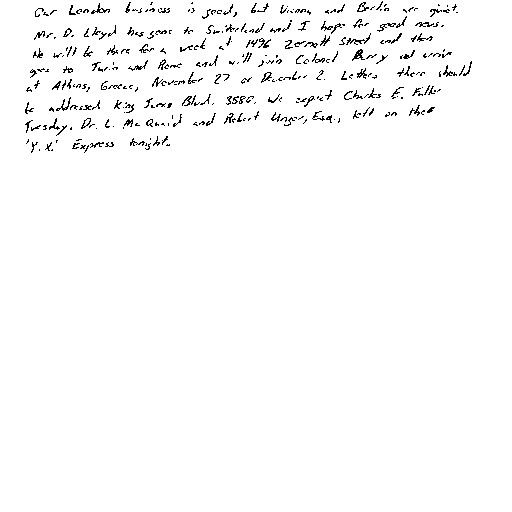 Our London business is good, but Vienna and Berlin are quiet.
Mr. D. Lloyd has gone to Switerland and I hope for good news.
He will be there for a week at 1496 Zermott Street and then
goes to Turin and Rome and will join Colonel Barry and arrive
at Athins, Greece, November 27 or December 2. Letters there should
be addressed King James Blvd. 3580. We expect Charles E. Fuller
Tuesday. Dr. L. McQuaid and Robert Unger, Esq., left on the
'Y.X.' Express tonight.